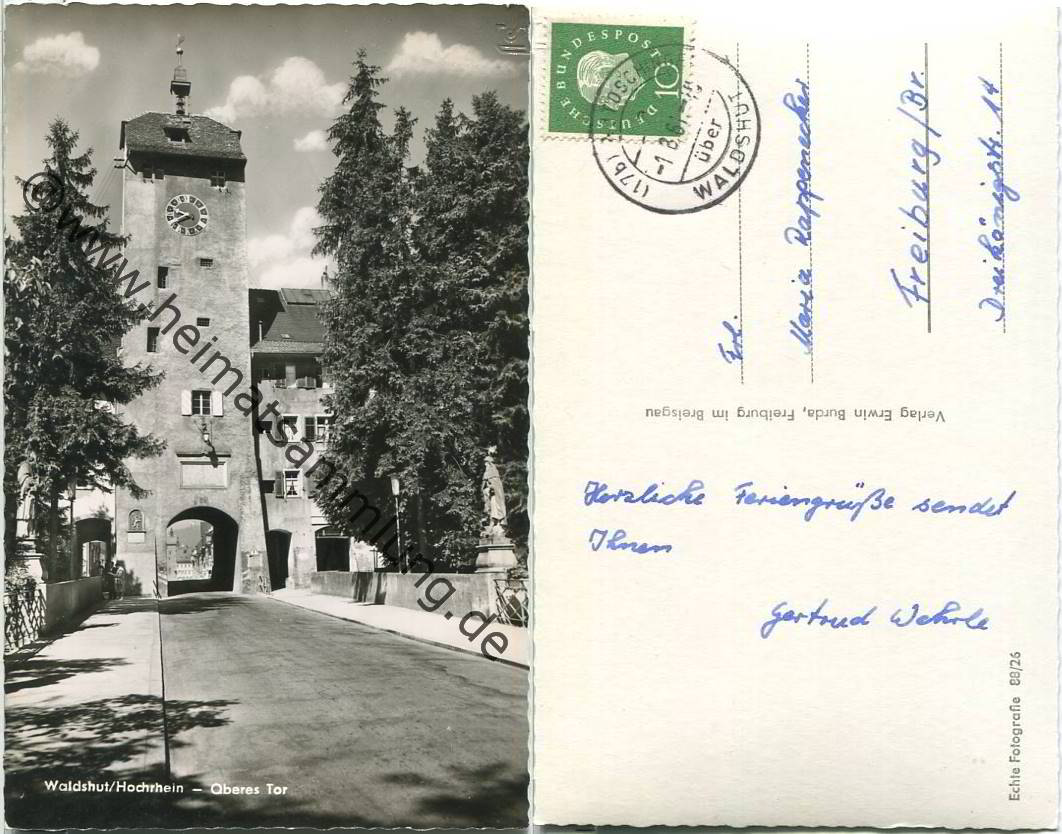 Waldshut/Hochrhein – Oberes Tor
© www.heimatsammlung.de
DEUTSCHE BUNDESPOST
10
(17b)
-1.8.61
über
WALDSHUT
Frl.
Maria Rappenecker
Freiburg/Br.
Dreikönigstr. 14
Verlag Erwin Burda, Freiburg im Breisgau
Herzliche Feriengrüße sendet
Ihnen
Gertrud Wehrle
Echte Fotografie 88/26